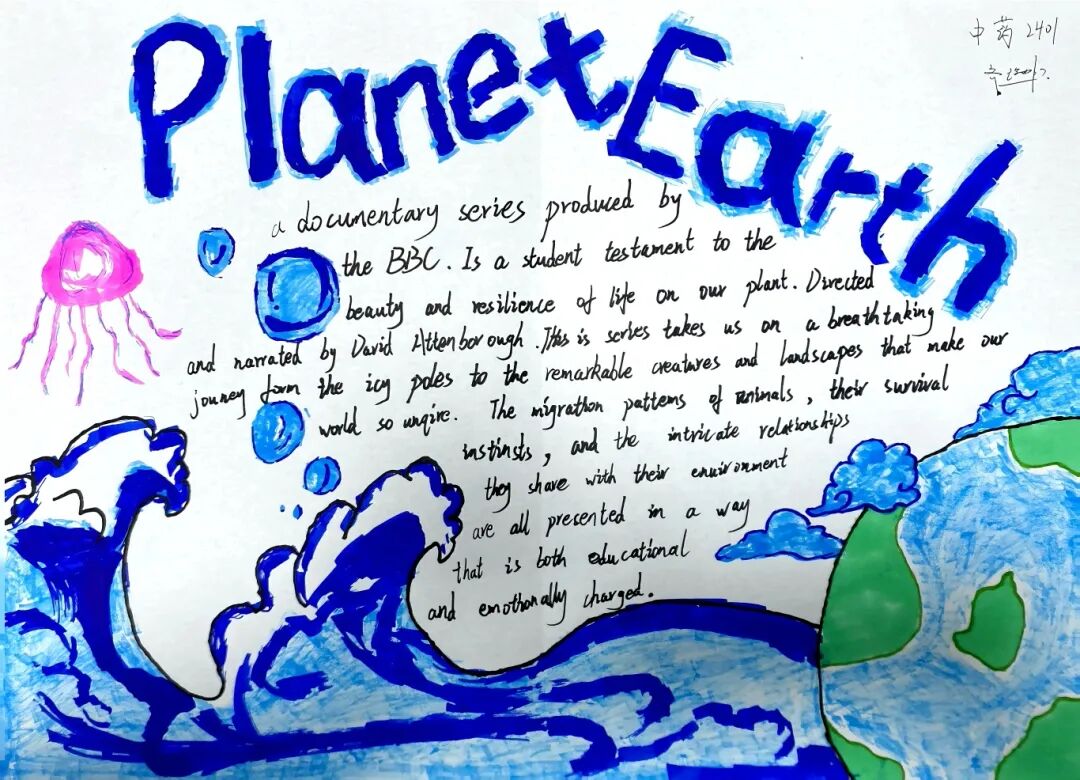 Planet Earth
中药 2401
a documentary series produced by
the BBC. Is a student testament to the
beauty and resilience of life on our plant. Directed
and narrated by David Attenborough. This is series takes us on a breathtaking
journey form the icy poles to the remarkable creatures and landscapes that make our
world so unqire. The migration patterns of animals, their survival
instincts, and the intricate relationships
they share with their enuironment
are all presented in a way
that is both educational
and emotionally charged.